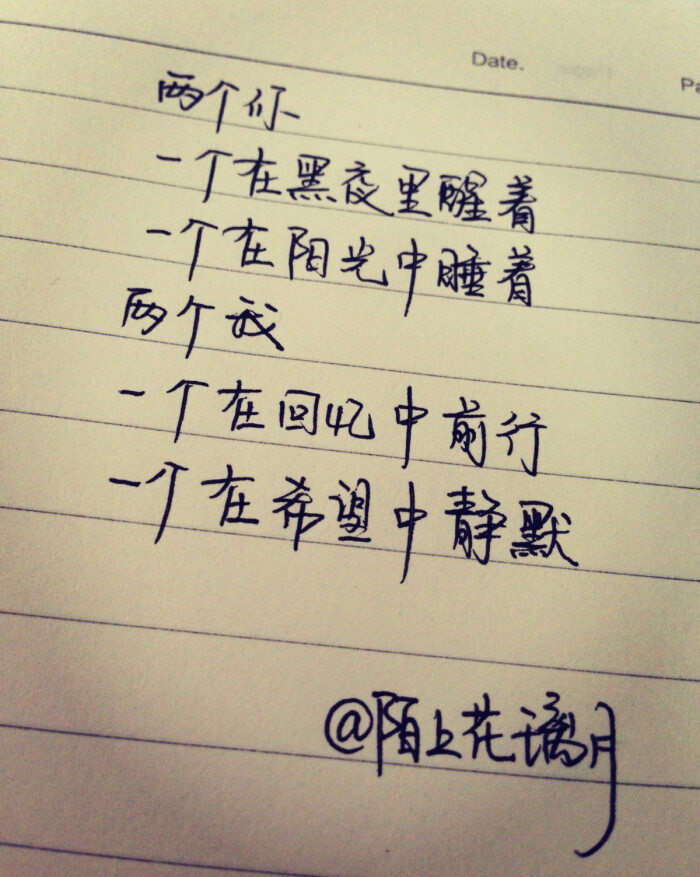 Date.
两个你
一个在黑夜里醒着
一个在阳光中睡着
两个我
一个在回忆中前行
一个在希望中静默
@陌上花璃月